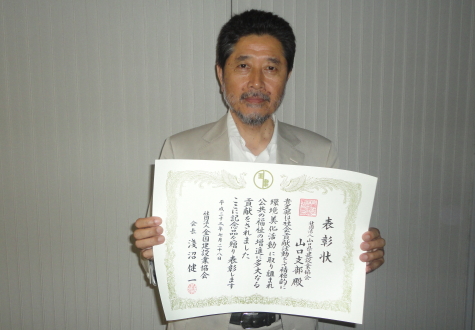 表彰状
社団法人山口県建設業協会
山口支部殿
貴支部は社会貢献活動として積極的に
環境美化活動に取り組まれ
公共の福祉の増進に多大なる
貢献をされました
ここに記念品を贈り表彰します
平成二十三年七月二十八日
社団法人全国建設業協会
会長 淺沼健一